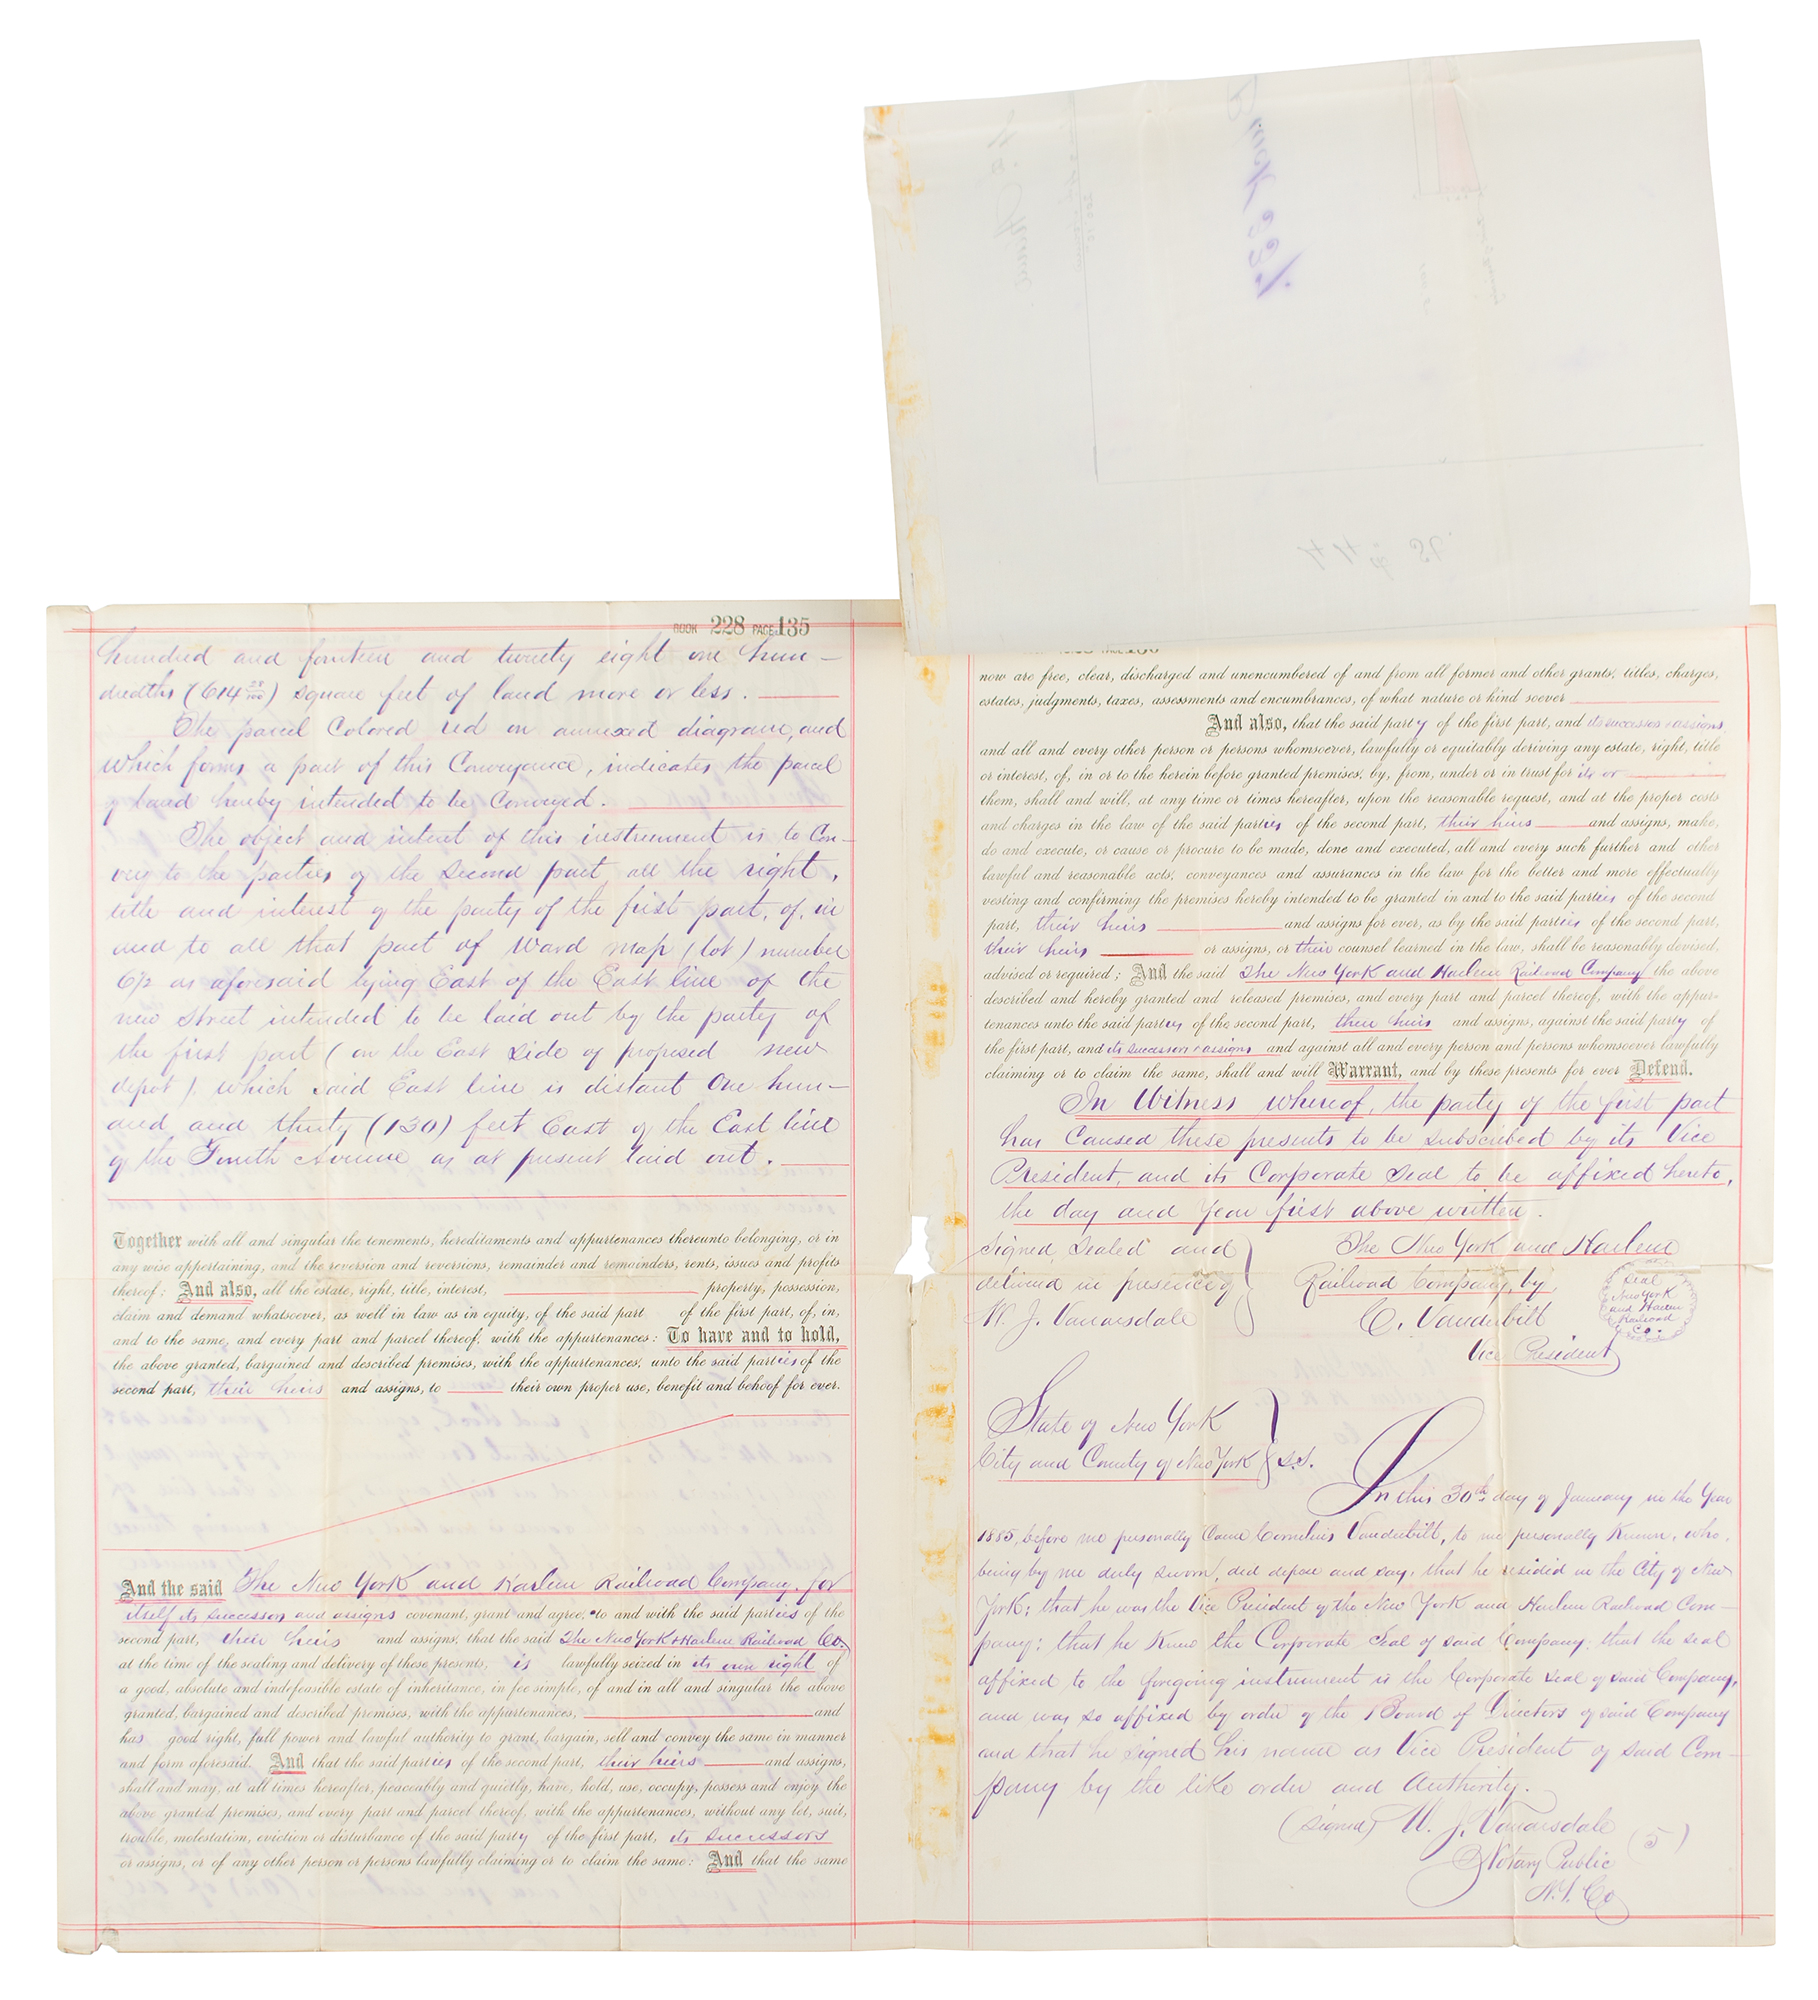 BOOK 228 PAGE 135
hundred and fourteen and twenty eight one hun-
dredths (614 28/100) square feet of land more or less.
The parcel Colored red on annexed diagram, and
which forms a part of this Conveyance, indicates the parcel
of land hereby intended to be Conveyed.
The object and intent of this instrument is to Con-
vey to the parties of the second part all the right,
title and interest of the party of the first part, of, in
and to all that part of Ward map (lot) number
as aforesaid lying East of the East line of the
new street intended to be laid out by the party of
the first part (on the East side of proposed new
depot), which said East line is distant One hun-
and and thirty (130) feet East of the East line
of the Fourth Avenue as at present laid out.
Together with all and singular the tenements, hereditaments and appurtenances thereunto belonging, or in
any wise appertaining, and the reversion and reversions, remainder and remainders, rents, issues and profits
thereof; And also, all the estate, right, title, interest, property, possession,
claim and demand whatsoever, as well in law as in equity, of the said part of the first part, of, in,
and to the same, and every part and parcel thereof, with the appurtenances: To have and to hold,
the above granted, bargained and described premises, with the appurtenances, unto the said parties of the
second part, their heirs and assigns, to their own proper use, benefit and behoof for ever.
And the said The New York and Harlem Railroad Company, for
itself its successors and assigns covenant, grant and agree, to and with the said parties of the
second part, their heirs and assigns, that the said The New York & Harlem Railroad Co.
at the time of the sealing and delivery of these presents, is lawfully seized in its own right of
a good, absolute and indefeasible estate of inheritance, in fee simple, of and in all and singular the above
granted, bargained and described premises, with the appurtenances, and
has good right, full power and lawful authority to grant, bargain, sell and convey the same in manner
and form aforesaid. And that the said parties of the second part, their heirs and assigns,
shall and may, at all times hereafter, peaceably and quietly, have, hold, use, occupy, possess and enjoy the
above granted premises, and every part and parcel thereof, with the appurtenances, without any let, suit,
trouble, molestation, eviction or disturbance of the said party of the first part, its successors
or assigns, or of any other person or persons lawfully claiming or to claim the same: And that the same
now are free, clear, discharged and unencumbered of and from all former and other grants, titles, charges,
estates, judgments, taxes, assessments and encumbrances, of what nature or kind soever
And also, that the said party of the first part, and its successors & assigns
and all and every other person or persons whomsoever, lawfully or equitably deriving any estate, right, title
or interest, of, in or to the herein before granted premises, by, from, under or in trust for its or
them, shall and will, at any time or times hereafter, upon the reasonable request, and at the proper costs
and charges in the law of the said parties of the second part, their heirs and assigns, make,
do and execute, or cause or procure to be made, done and executed, all and every such further and other
lawful and reasonable acts, conveyances and assurances in the law for the better and more effectually
vesting and confirming the premises hereby intended to be granted in and to the said parties of the second
part, their heirs and assigns for ever, as by the said parties of the second part,
their heirs or assigns, or their counsel learned in the law, shall be reasonably devised,
advised or required; And the said The New York and Harlem Railroad Company the above
described and hereby granted and released premises, and every part and parcel thereof, with the appur-
tenances unto the said parties of the second part, their heirs and assigns, against the said party of
the first part, and its successors & assigns and against all and every person and persons whomsoever lawfully
claiming or to claim the same, shall and will Warrant, and by these presents for ever Defend.
In Witness whereof, the party of the first part
has Caused these presents to be subscribed by its Vice
President, and its Corporate Seal to be affixed hereto,
the day and year first above written.
Signed, Sealed and
delivered in presence of
W. J. Vanarsdale
The New York and Harlem
Railroad Company, by
C. Vanderbilt
Vice President
Seal
New York
and Harlem
Railroad
Co.
State of New York
City and County of New York } S.S.
On this 30th day of January in the Year
1885, before me personally Came Cornelius Vanderbilt, to me personally Known, who,
being by me duly sworn, did depose and say, that he resided in the City of New
York; that he was the Vice President of the New York and Harlem Railroad Com-
pany; that he Knew the Corporate Seal of said Company; that the seal
affixed to the foregoing instrument is the Corporate seal of said Company,
and was so affixed by order of the Board of Directors of said Company
and that he signed his name as Vice President of said Com-
pany by the like order and Authority.
(Signed) W. J. Vanarsdale
Notary Public (5)
N.Y. Co